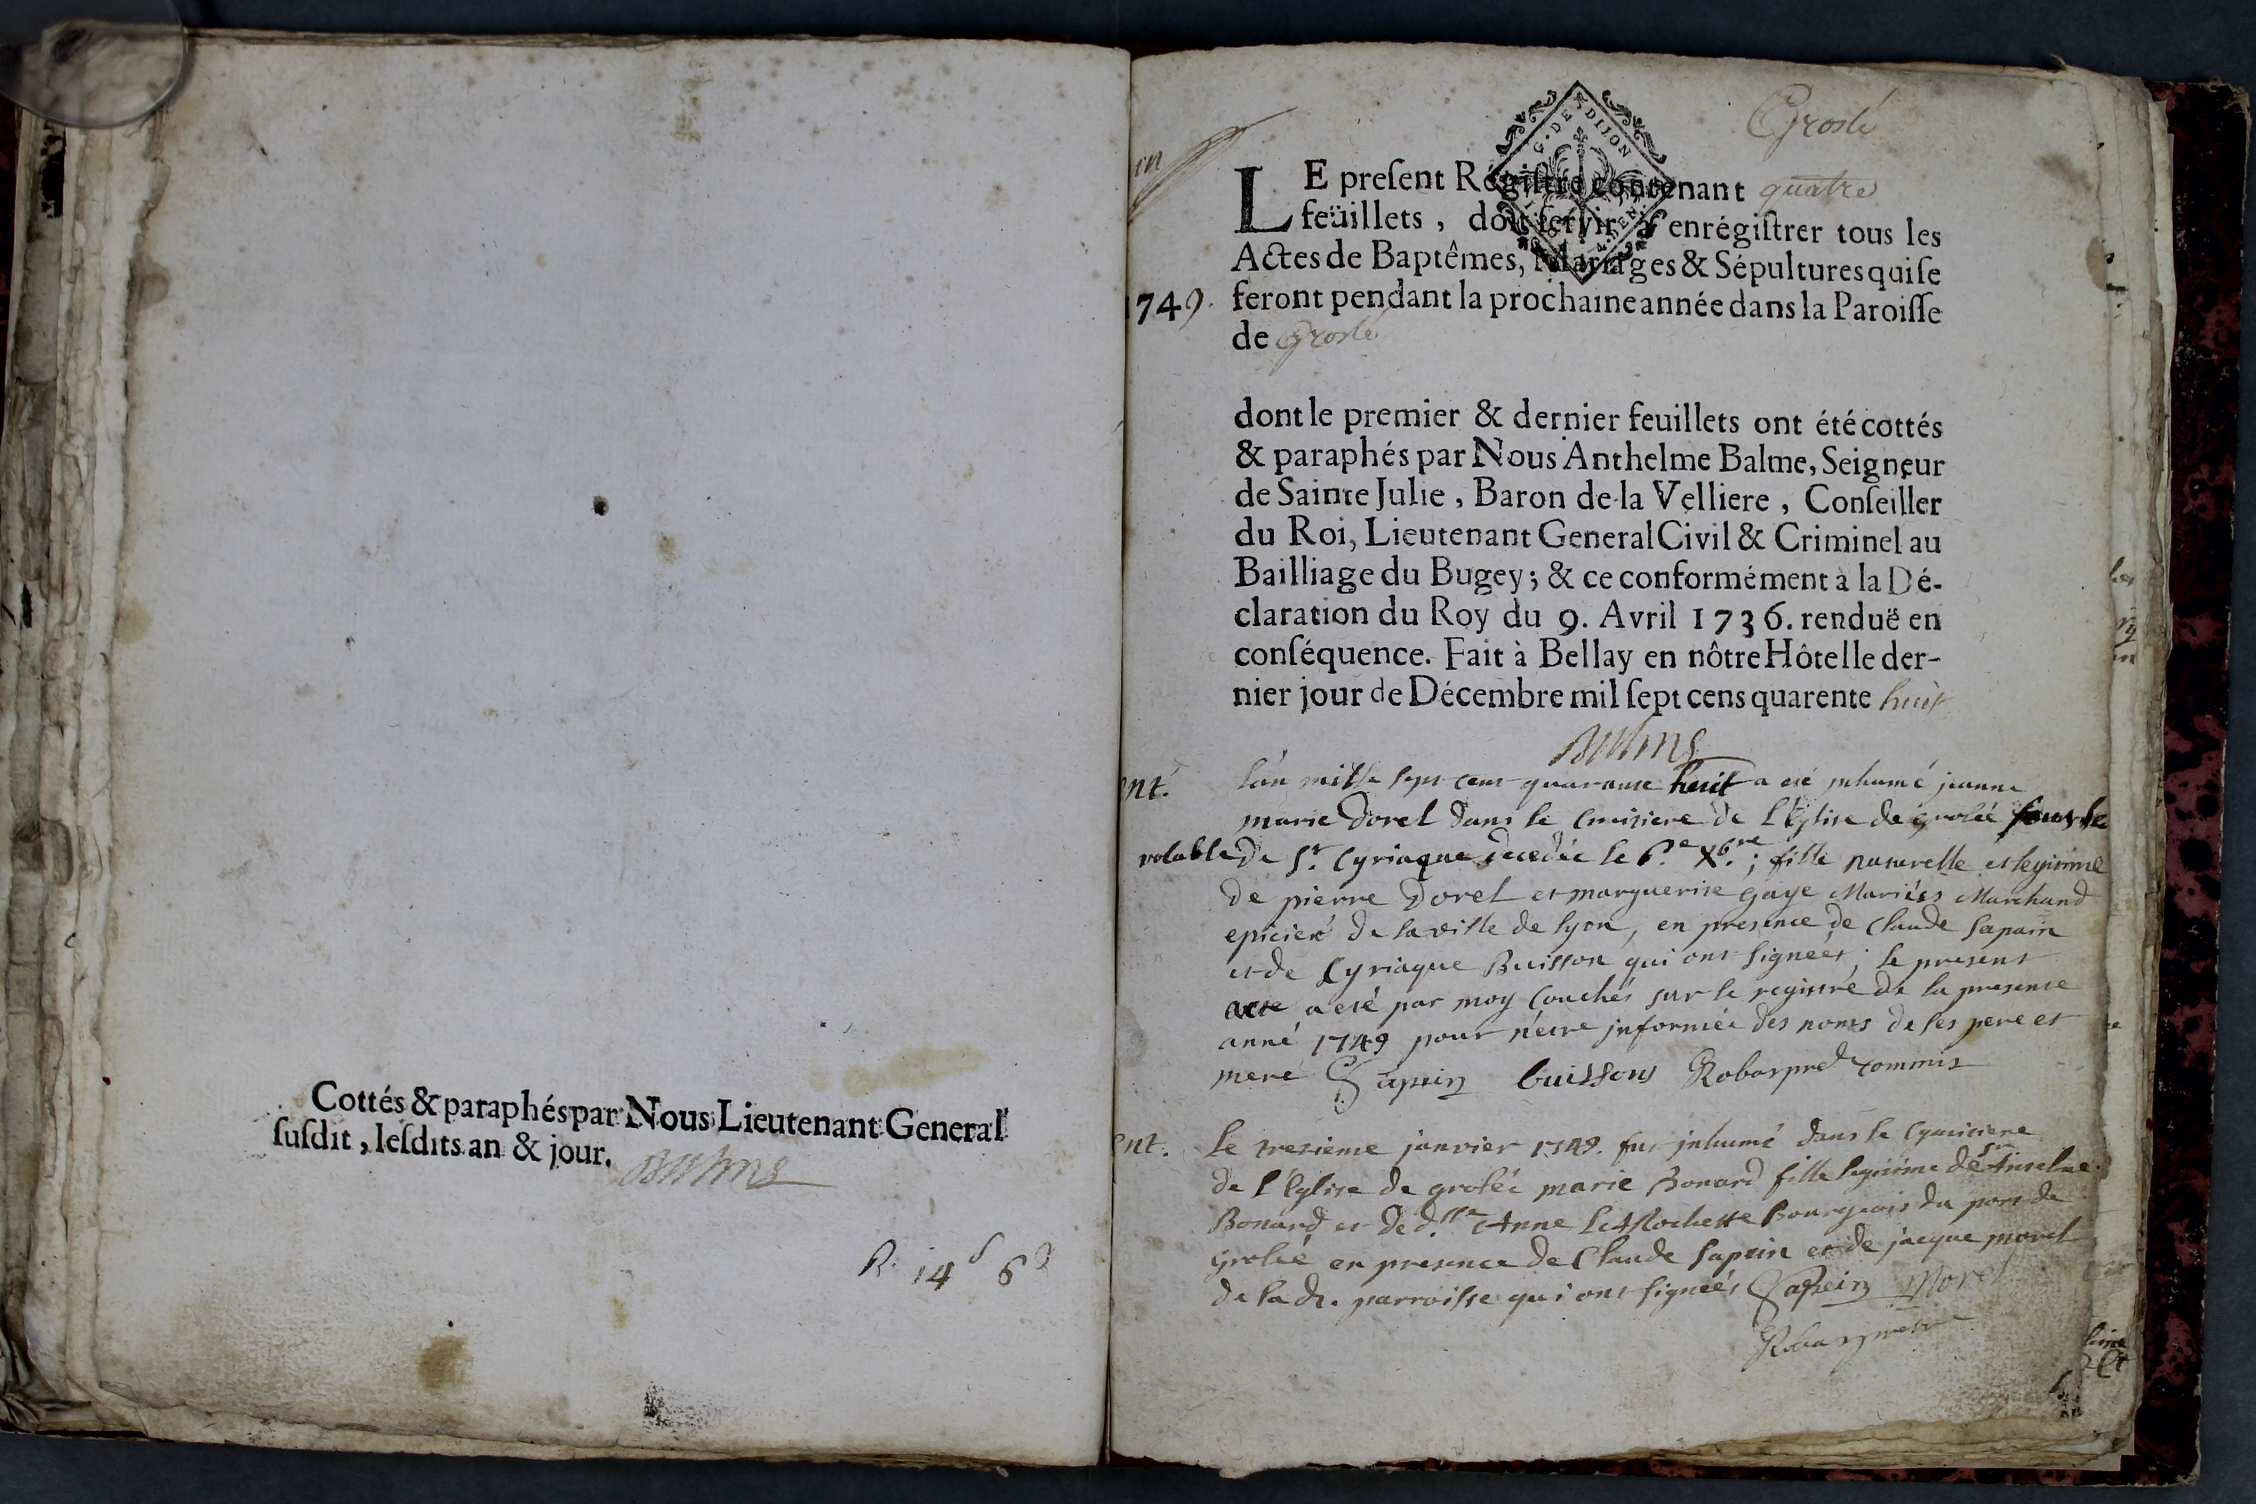 Cottés & paraphés par Nous Lieutenant General
ſuſdit, leſdits an & jour.
R. 14ˢ 6ᵈ
Groslé
G. DE DIJON
LE preſent Régiſtre contenant quatre
feüillets, doit ſervir à enrégiſtrer tous les
Actes de Baptêmes, Mariages & Sépultures qui ſe
1749. feront pendant la prochaine année dans la Paroiſſe
de Groslé
dont le premier & dernier feuillets ont été cottés
& paraphés par Nous Anthelme Balme, Seigneur
de Sainte Julie, Baron de la Velliere, Conſeiller
du Roi, Lieutenant General Civil & Criminel au
Bailliage du Bugey; & ce conformément à la Dé-
claration du Roy du 9. Avril 1736. renduë en
conſéquence. Fait à Bellay en nôtre Hôtel le der-
nier jour de Décembre mil ſept cens quarente huit
ent. l'an mille sept cent quarante huit a eté inhumé jeanne
marie Dorel dans le Cmitiere de l'Eglise de grolée sous le
volable De St. Cyriaque decedée le 6.e Xbre; fille naturelle et legitime
de pierre Dorel et marguerite gaye Mariées Marchand
epicier de la ville de lyon, en presence de Claude sapain
et de Cyriaque Buisson qui ont signeés; le present
acte a eté par moy Couchés sur le registre de la presente
anné 1749 pour n'etre informée des noms de ses pere et
mere Sapein buissons Robas pred commis
ent. le tresieme janvier 1749. fut inhumé dans le Cymitiere
de l'Eglise de grolée marie Bonard fille legitime de Sr Anselme
Bonard et de d.lle Anne la Rochette Bourgeois du port de
Grolée en presence de Claude Sapein et de jacque morel
de la de. parroisse qui ont signeés Sapein Morel
Robas pretre